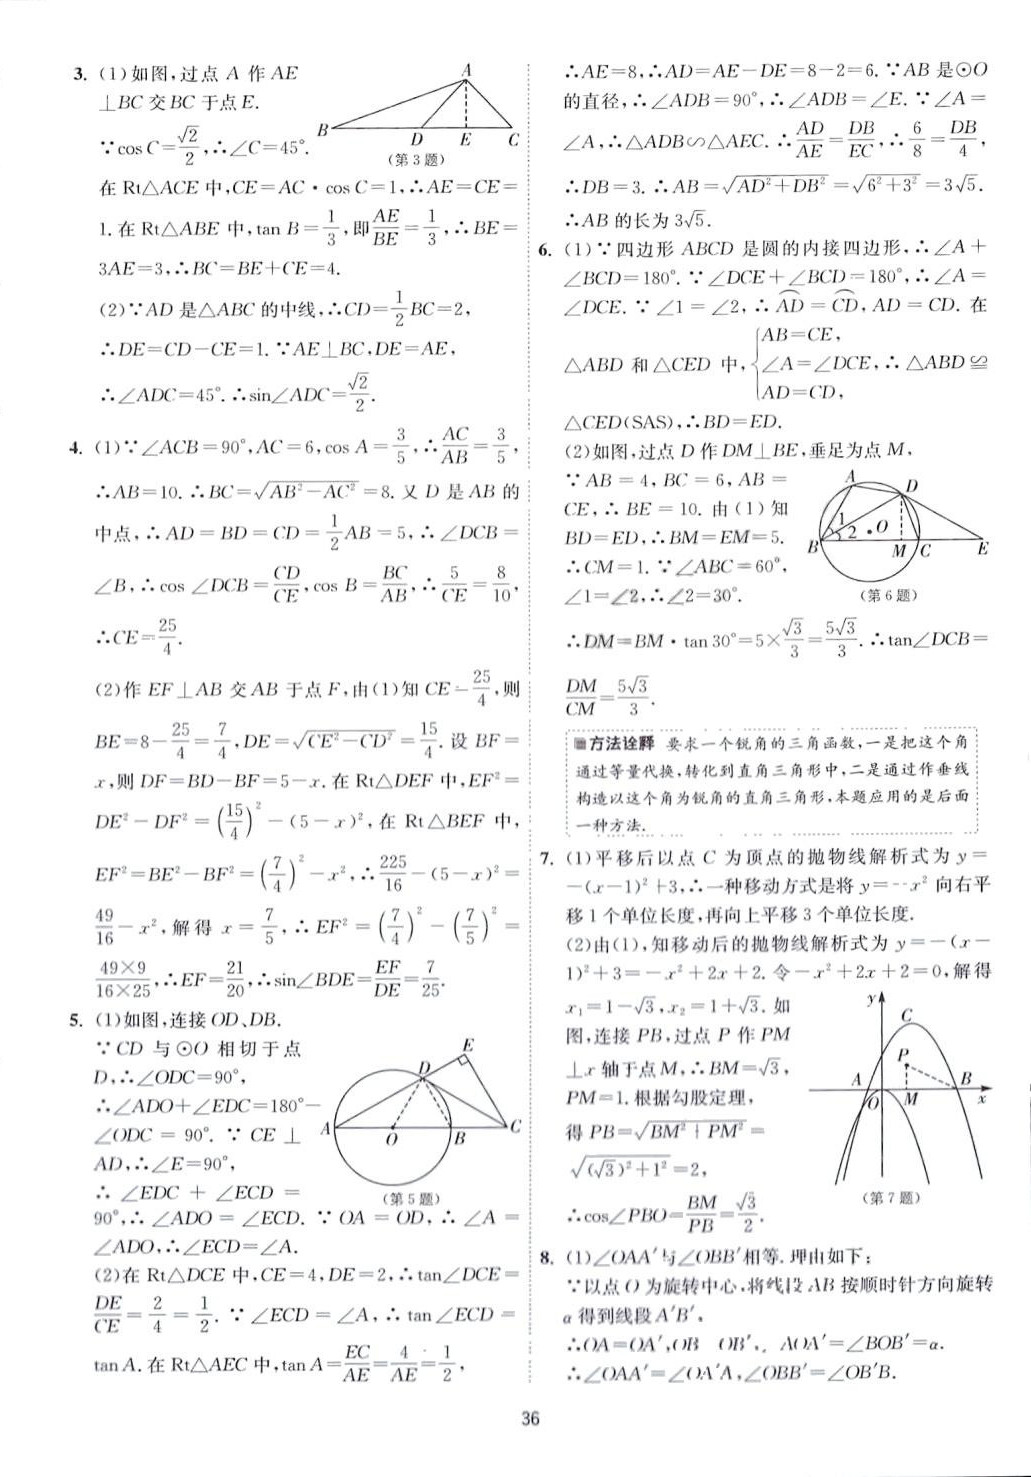 3. (1)如图,过点 A 作 AE
⊥BC 交 BC 于点 E.
∵cos C=√2/2,∴∠C=45°.
A
B
D
E
C
(第 3 题)
在 Rt△ACE 中,CE=AC·cos C=1,∴AE=CE=
1. 在 Rt△ABE 中,tan B=1/3,即AE/BE=1/3,∴BE=
3AE=3,∴BC=BE+CE=4.
(2)∵AD 是△ABC 的中线,∴CD=1/2BC=2,
∴DE=CD-CE=1.∵AE⊥BC,DE=AE,
∴∠ADC=45°.∴sin∠ADC=√2/2.
4. (1)∵∠ACB=90°,AC=6,cos A=3/5,∴AC/AB=3/5,
∴AB=10.∴BC=√(AB²-AC²)=8.又 D 是 AB 的
中点,∴AD=BD=CD=1/2AB=5,∴∠DCB=
∠B,∴cos∠DCB=CD/CE,cos B=BC/AB,∴5/CE=8/10,
∴CE=25/4.
(2)作 EF⊥AB 交 AB 于点 F,由(1)知 CE=25/4,则
BE=8-25/4=7/4,DE=√(CE²-CD²)=15/4.设 BF=
x,则 DF=BD-BF=5-x.在 Rt△DEF 中,EF²=
DE²-DF²=(15/4)²-(5-x)²,在 Rt△BEF 中,
EF²=BE²-BF²=(7/4)²-x²,∴225/16-(5-x)²=
49/16-x²,解得 x=7/5,∴EF²=(7/4)²-(7/5)²=
49×9/16×25,∴EF=21/20,∴sin∠BDE=EF/DE=7/25.
5. (1)如图,连接 OD、DB.
∵CD 与⊙O 相切于点
D,∴∠ODC=90°,
∴∠ADO+∠EDC=180°-
∠ODC=90°.∵CE⊥
AD,∴∠E=90°,
∴∠EDC+∠ECD=
E
D
A
O
B
C
(第 5 题)
90°,∴∠ADO=∠ECD.∵OA=OD,∴∠A=
∠ADO,∴∠ECD=∠A.
(2)在 Rt△DCE 中,CE=4,DE=2,∴tan∠DCE=
DE/CE=2/4=1/2.∵∠ECD=∠A,∴tan∠ECD=
tan A.在 Rt△AEC 中,tan A=EC/AE=4/AE=1/2,
∴AE=8,∴AD=AE-DE=8-2=6.∵AB 是⊙O
的直径,∴∠ADB=90°,∴∠ADB=∠E.∵∠A=
∠A,∴△ADB∽△AEC.∴AD/AE=DB/EC,∴6/8=DB/4,
∴DB=3.∴AB=√(AD²+DB²)=√(6²+3²)=3√5.
∴AB 的长为 3√5.
6. (1)∵四边形 ABCD 是圆的内接四边形,∴∠A+
∠BCD=180°.∵∠DCE+∠BCD=180°,∴∠A=
∠DCE.∵∠1=∠2,∴⌒AD=⌒CD,AD=CD.在
△ABD 和△CED 中,{AB=CE, ∠A=∠DCE, AD=CD, ∴△ABD≌
△CED(SAS),∴BD=ED.
(2)如图,过点 D 作 DM⊥BE,垂足为点 M,
∵AB=4,BC=6,AB=
CE,∴BE=10.由(1)知
BD=ED,∴BM=EM=5.
∴CM=1.∵∠ABC=60°,
∠1=∠2,∴∠2=30°.
A
D
1
2
O
B
M
C
E
(第 6 题)
∴DM=BM·tan 30°=5×√3/3=5√3/3.∴tan∠DCB=
DM/CM=5√3/3.
方法诠释 要求一个锐角的三角函数,一是把这个角
通过等量代换,转化到直角三角形中,二是通过作垂线
构造以这个角为锐角的直角三角形,本题应用的是后面
一种方法.
7. (1)平移后以点 C 为顶点的抛物线解析式为 y=
-(x-1)²+3,∴一种移动方式是将 y=-x² 向右平
移 1 个单位长度,再向上平移 3 个单位长度.
(2)由(1),知移动后的抛物线解析式为 y=-(x-
1)²+3=-x²+2x+2.令-x²+2x+2=0,解得
x₁=1-√3,x₂=1+√3.如
图,连接 PB,过点 P 作 PM
⊥x 轴于点 M,∴BM=√3,
PM=1.根据勾股定理,
得 PB=√(BM²+PM²)=
√((√3)²+1²)=2,
∴cos∠PBO=BM/PB=√3/2.
y
C
P
A
O
M
B
x
(第 7 题)
8. (1)∠OAA′与∠OBB′相等.理由如下:
∵以点 O 为旋转中心,将线段 AB 按顺时针方向旋转
α 得到线段 A′B′,
∴OA=OA′,OB OB′, AOA′=∠BOB′=α.
∴∠OAA′=∠OA′A,∠OBB′=∠OB′B.
36